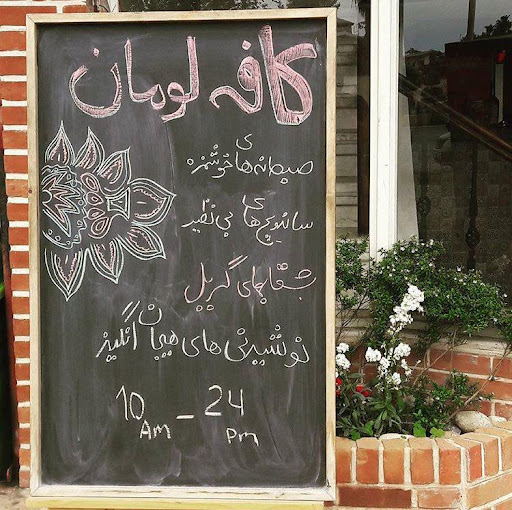 کافه لومان
صبحانه های خوشمزه
ساندویچ های بی نظیر
بشقابهای گریل
نوشیدنی های هیجان انگیز
10 Am - 24 pm